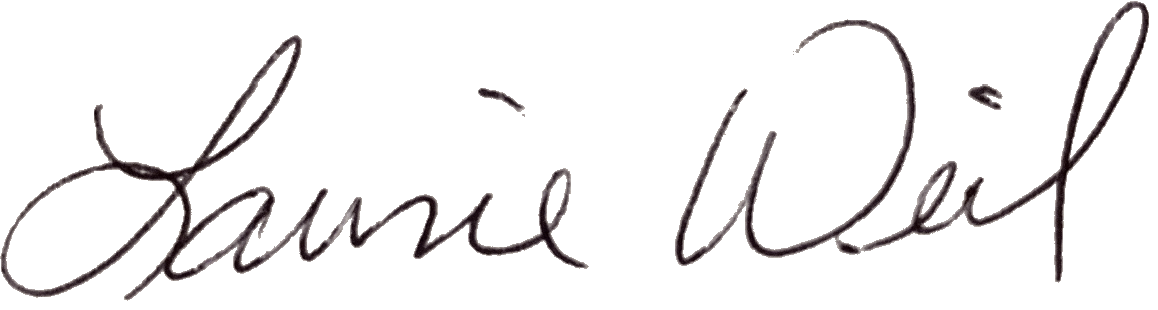 Laurie Weil